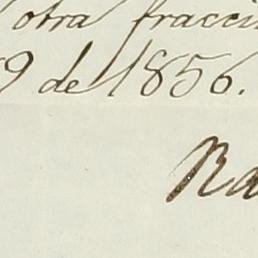 otra fracci
9 de 1856.
Ra